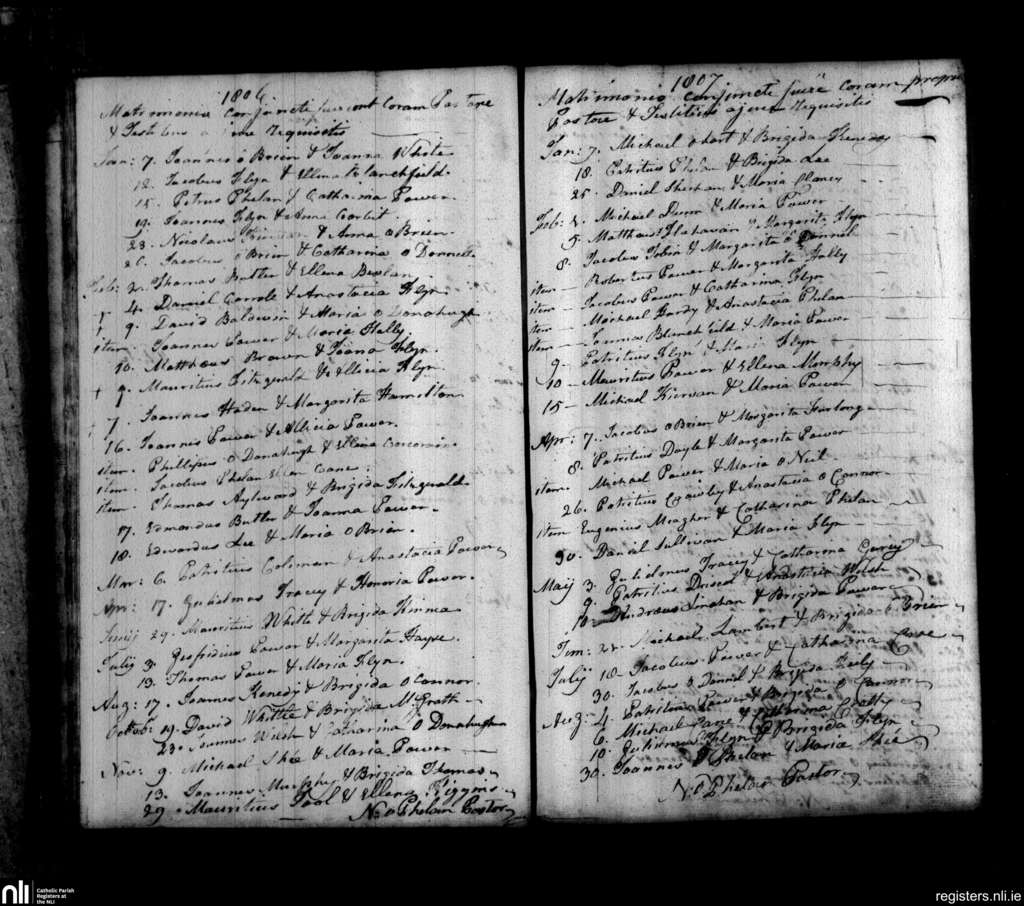 1806
Matrimonia Conjuncti fuerunt Coram Pastore
& Testibus a jure Requisitis
Jan: 7. Joannes o Brien & Joanna White
12. Jacobus Flyn & Ellena Blanchfield.
15. Petrus Phelan & Catharina Power.
19. Joannes Flyn & Anna Corbit.
23. Nicolaus & Anna o Brien.
26. Jacobus o Brien & Catharina o Donnell.
Feb: 2. Thomas Butler & Ellena Bowlan.
4. Daniel Carrole & Anastacia Flyn.
9. David Baldwin & Maria o Donahugh
item Joannes Power & Maria Hally.
10. Matthaeus Brawn & Joana Flyn.
9. Mauritius Fitzgerald & Allicia Flyn.
7. Joannes Haden & Margarita Hamelton.
16. Joannes Power & Allicia Power.
item. Phillipus O Donahugh & Ellena Corcoran.
item. Jacobus Phelan Ellen Cane.
item. Thomas Aylward & Brigida Fitzgerald.
17. Edmondus Butler & Joanna Power.
18. Edvardus Lee & Maria O Brien.
Mar: 6. Patritius Coleman & Anastacia Power
Apr: 17. Gulielmus Tracey & Honoria Power.
Junij 29. Mauritius Whitte & Brigida Kinna
Julij 3. Geofridius Power & Margarita Hayse.
13. Thomas Power & Maria Flyn.
Aug: 17. Joannes Kenedy & Brigida O Connor.
Octob: 19. David Whitte & Brigida McGrath
23. Joannes Welsh & Catharina O Donahugh
Nov: 9. Michael Shee & Maria Power
13. Joannes Murphy & Brigida Thomas
29. Mauritius Tool & Ellena
N: o Phelan Pastor
1807
Matrimonio Conjuncti fuere Coram proprio
Pastore & Testibus a jure Requisitis
Jan: 7. Michael o hart & Brigida Kenedy
18. Patritius Phelan & Brigida Lee
25. Daniel Sheehan & Maria Clancy
Feb: 2. Michael Dunn & Maria Power
5. Matthaus Flahavan & Margarita Flyn
8. Jacobus Tobin & Margarita o Donnel
item Robertus Power & Margarita Hally
item Jacobus Power & Catharina Flyn
item Michael Hardy & Anastacia Phelan
item Joannes Blanchfield & Maria Power
9. Patritius Flyn & Maria Flyn
10 Mauritius Power & Ellena Morrphy
15 Michael Kiervan & Maria Power
Apr: 7. Jacobus o Brien & Margarita Furlong
8. Patritius Doyle & Margarita Power
item. Michael Power & Maria O Neil
26. Patritius & Anastacia o Connor.
item Eugenius Meagher & Catharina Phelan
30. Daniel Sullivan & Maria Flyn
Maij 3. Gulielmus Tracey & Catharina Gorey
9. Patritius Driscol & Anastacia Welsh
10 Andraeus Linahan & Brigida Power
Jun: 22. Michael Lambert & Brigida o Brien
Julij 18. Jacobus Power & Catharina Cane
30. Jacobus o Daniel & Brigida Keily
Aug: 4. Patritius Power & Brigida o Connor
6. Michael Cane & Catharina Crotty
10 Gulielmus Flyn & Brigida Flyn
30. Joannes o Phelan & Maria Shee
N: o Phelan Pastor
nli
Catholic Parish
Registers at
the NLI
registers.nli.ie